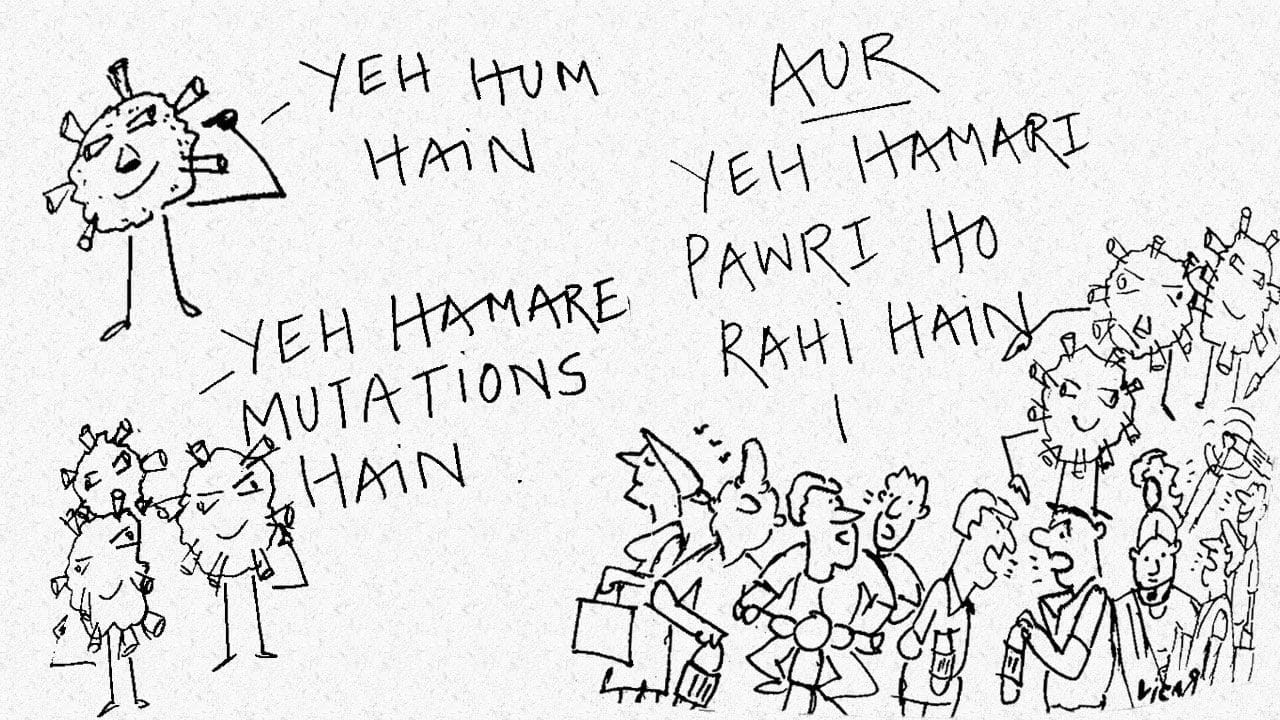 YEH HUM
HAiN
YEH HAMARE
MUTATiONS
HAiN
AUR
YEH HAMARI
PAWRI HO
RAHi HAiN